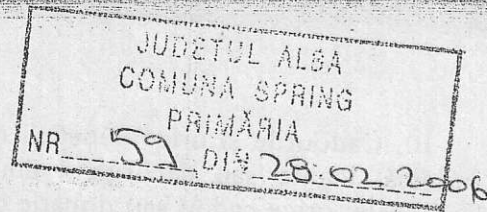 JUDEŢUL ALBA
COMUNA SPRING
PRIMĂRIA
NR 59 DIN 28.02.2006